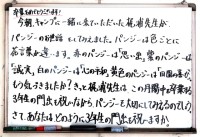 卒業おめでとうございます!
今朝、キャンプに一緒に来ていただいた梶浦先生が、
パンジーのお世話をしてみました。パンジーは色ごとに
花言葉が違います。赤のパンジーは「思い出」紫のパンジーは
「誠実」白のパンジーは「心の平和」黄色のパンジーは「田園の喜び」
もう色々できましたか!きっと梶浦先生は、この月間中、卒業する
3年生の門出を祝いながらパンジーも大切にして行えるのでしょう
さて、あなたはどのように3年生の門出を祝いますか?